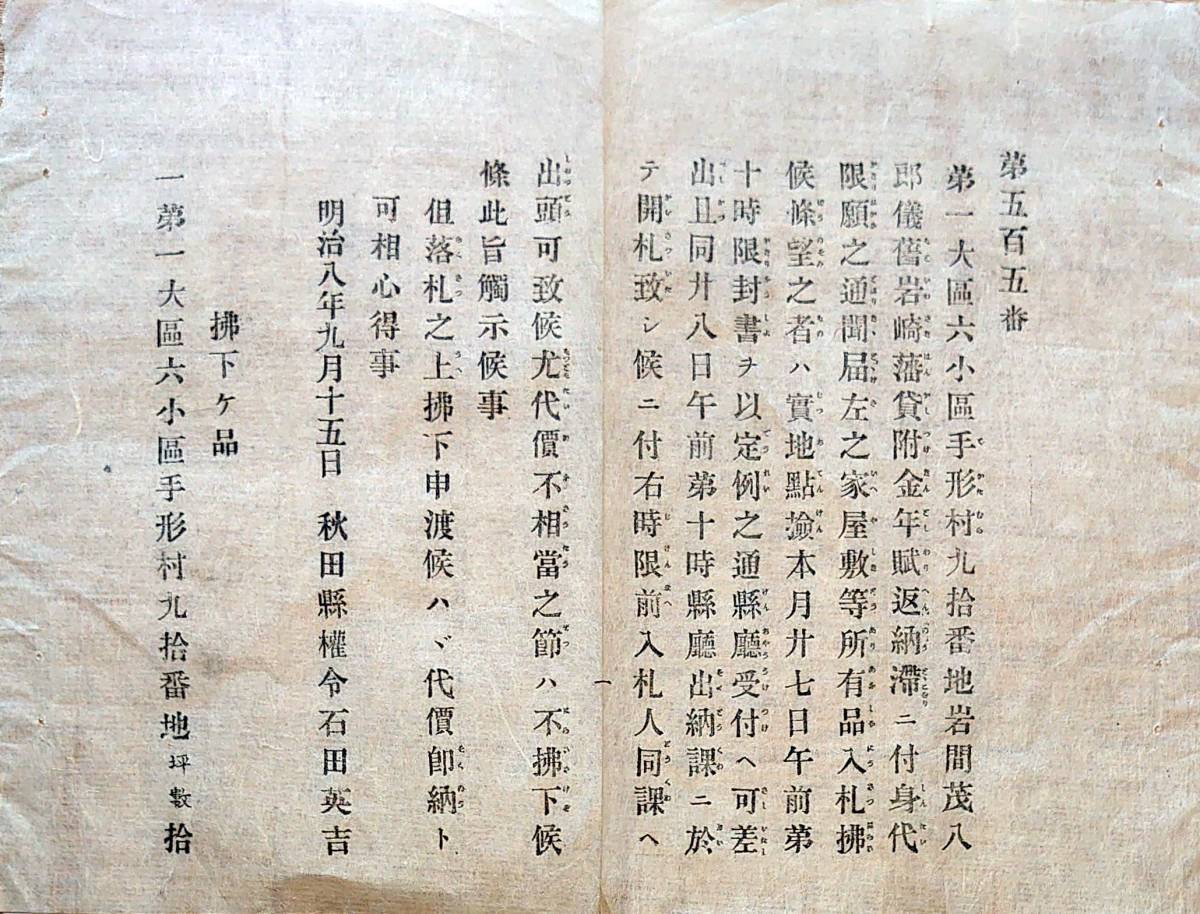 第五百五番
第一大區六小區手形村九拾番地岩間茂八
郎儀舊岩崎藩貸附金年賦返納滯ニ付身代
限願之通聞屆左之家屋敷等所有品入札拂
候條望之者ハ實地點撿本月廿七日午前第
十時限封書ヲ以定例之通縣廳受付ヘ可差
出且同廿八日午前第十時縣廳出納課ニ於
テ開札致シ候ニ付右時限前入札人同課ヘ
出頭可致候尤代價不相當之節ハ不拂下候
條此旨觸示候事
但落札之上拂下申渡候ハヾ代價卽納ト
可相心得事
明治八年九月十五日 秋田縣權令石田英吉
拂下ケ品
一第一大區六小區手形村九拾番地坪數拾
一